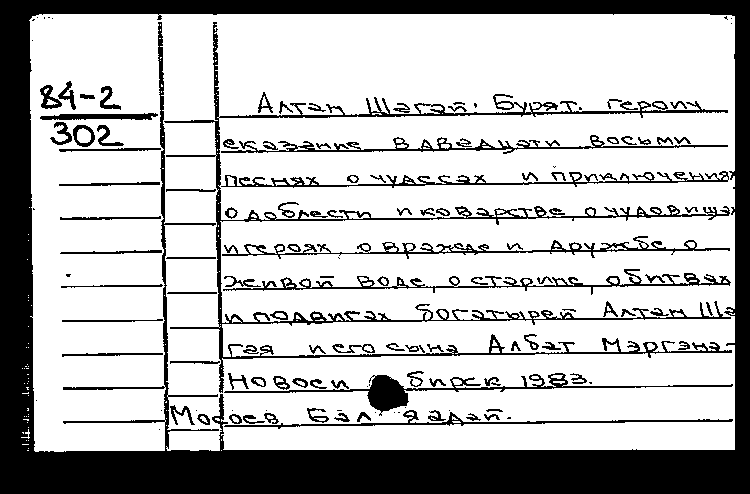 84-2
302
Алтан Шагай. Бурят. героич
сказание в двадцати восьми
песнях о чудесах и приключениях
о доблести и коварстве, о чудовищах
и героях, о вражде и дружбе, о
живой воде, о старине, о битвах
и подвигах богатырей Алтан Ша
гая и его сына Албат Мэргэна-
Новоси бирск, 1983.